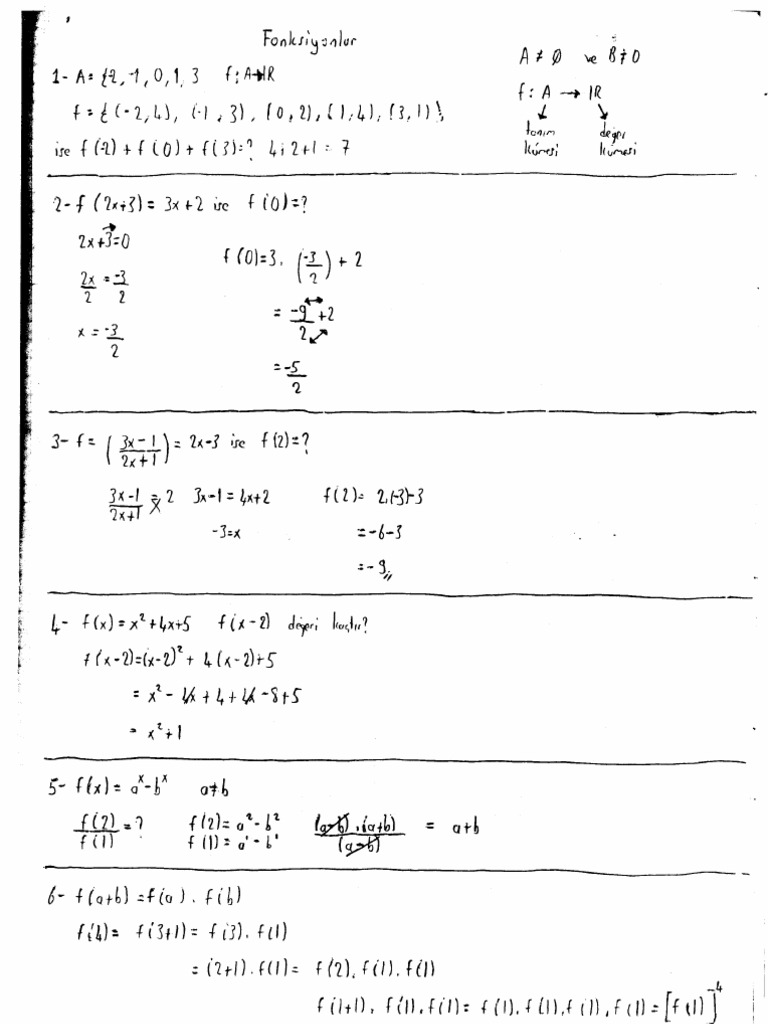 Fonksiyonlar
A ≠ ∅ ve B ≠ 0
1- A = {-2, -1, 0, 1, 3 f: A→IR
f: A → IR
f = { (-2,4), (-1,3), (0,2), (1,4), (3,1) },
tanım kümesi
değer kümesi
ise f(-2) + f(0) + f(3) = ? 4+2+1 = 7
2- f(2x+3) = 3x+2 ise f(0) = ?
2x+3=0
f(0)=3. (-3/2) + 2
2x/2 = -3/2
= -9/2 + 2
x = -3/2
= -5/2
3- f = (3x-1/2x+1) = 2x-3 ise f(2) = ?
3x-1/2x+1 = 2 3x-1 = 4x+2 f(2) = 2.(-3)-3
-3=x = -6-3
= -9
4- f(x) = x² + 4x+5 f(x-2) değeri kaçtır?
f(x-2) = (x-2)² + 4(x-2)+5
= x² - 4x + 4 + 4x - 8 + 5
= x² + 1
5- f(x) = aˣ - bˣ a≠b
f(2)/f(1) = ? f(2) = a² - b² (a-b).(a+b)/(a-b) = a+b
f(1) = a¹ - b¹
6- f(a+b) = f(a) . f(b)
f(4) = f(3+1) = f(3). f(1)
= (2+1) . f(1) = f(2). f(1). f(1)
f(1+1), f(1). f(1) = f(1). f(1). f(1). f(1) = [f(1)]⁻⁴